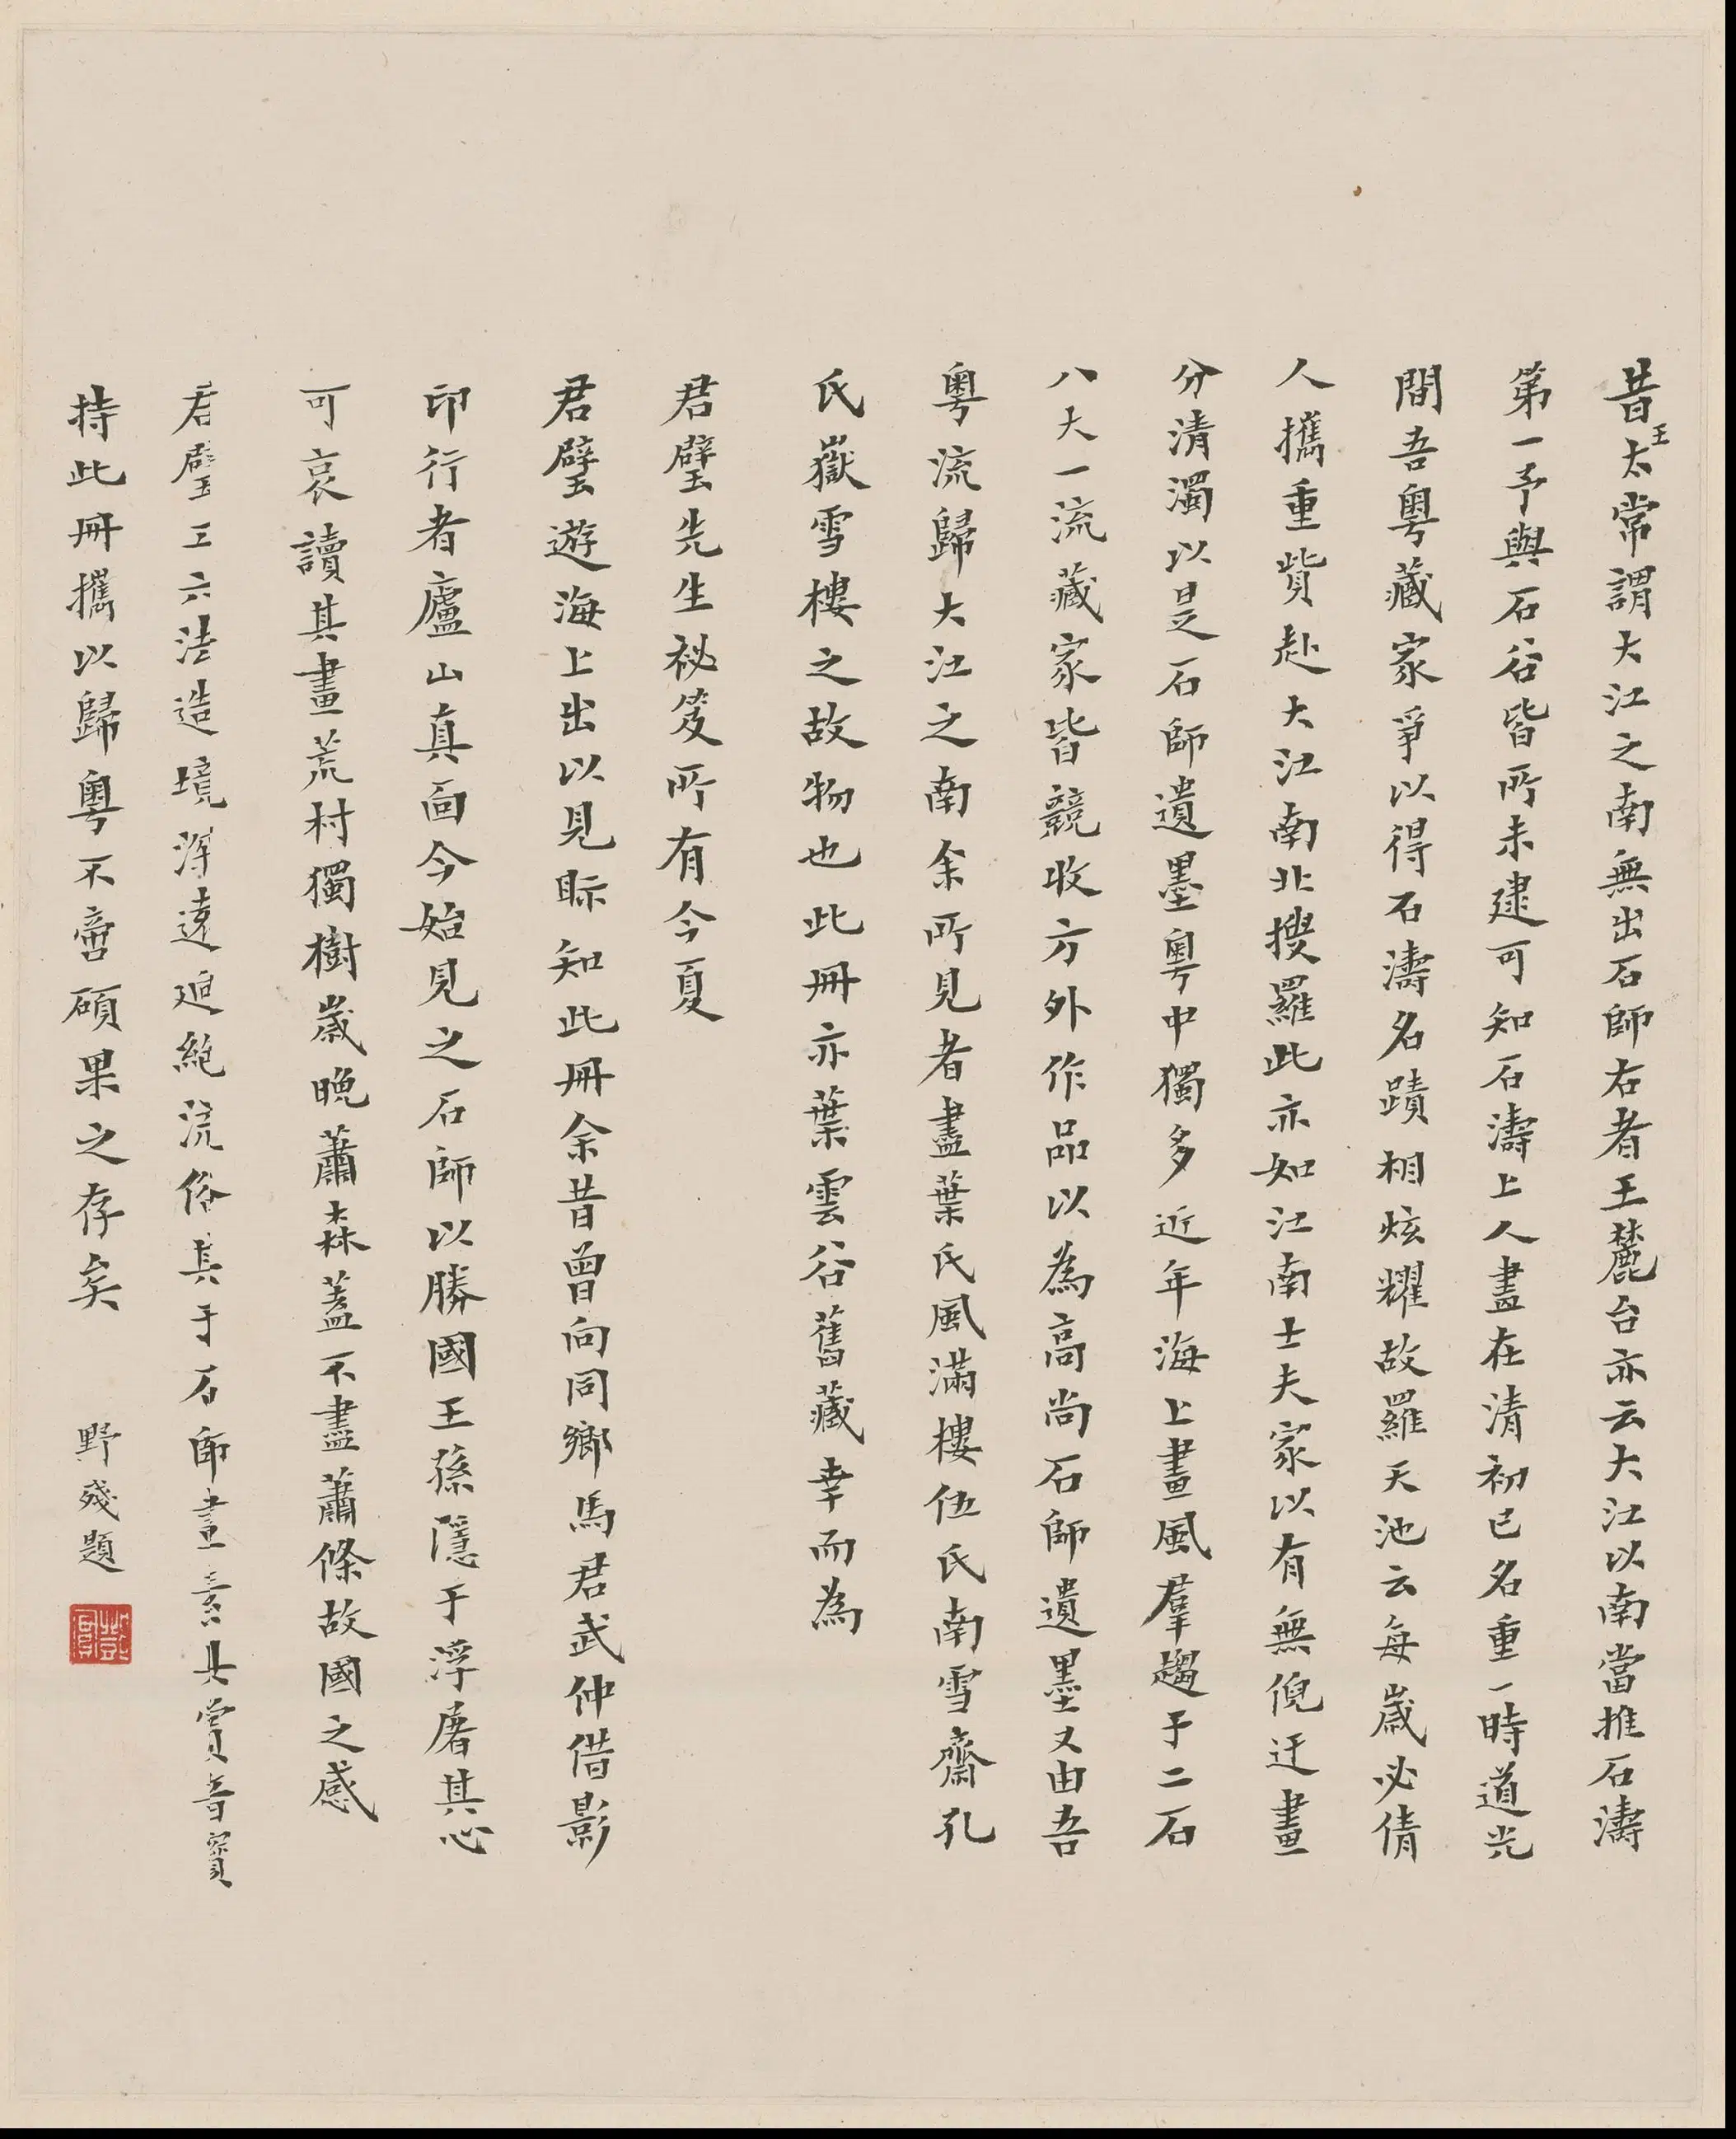 昔王太常謂大江之南無出石師右者王麓台亦云大江以南當推石濤
第一予與石谷皆所未逮可知石濤上人畫在清初已名重一時道光
間吾粵藏家爭以得石濤名蹟相炫耀故羅天池云每歲必倩
人攜重貲赴大江南北搜羅此亦如江南士夫家以有無倪迂畫
分清濁以是石師遺墨粵中獨多近年海上畫風羣趨于二石
八大一流藏家皆競收方外作品以為高尚石師遺墨又由吾
粵流歸大江之南余所見者盡葉氏風滿樓伍氏南雪齋孔
氏嶽雪樓之故物也此冊亦葉雲谷舊藏幸而為
君璧先生祕笈所有今夏
君璧遊海上出以見眎知此冊余昔曾向同鄉馬君武仲借影
印行者廬山真面今始見之石師以勝國王孫隱于浮屠其心
可哀讀其畫荒村獨樹歲晚蕭森蓋不盡蕭條故國之感
君璧工六法造境深遠迥絕流俗其于石師畫素具賞音寶
持此冊攜以歸粵不啻碩果之存矣 野殘題